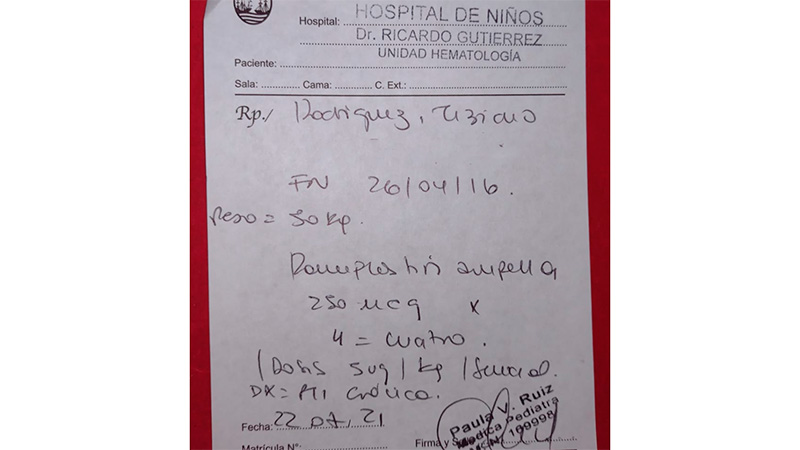 Hospital: HOSPITAL DE NIÑOS
Dr. RICARDO GUTIERREZ
UNIDAD HEMATOLOGÍA
Paciente:
Sala: Cama: C. Ext.:
Rp./ Rodriguez, Tiziano
FN 26/04/16.
Peso = 50 kg.
Romiplostin ampolla
250 mcg x
4 = cuatro.
/Dosis 5ug/kg/semanal.
DX = PTI crónica.
Fecha: 22 07, 21
Paula V. Ruiz
Medica Pediatra
199998
Matrícula N°: Firma y